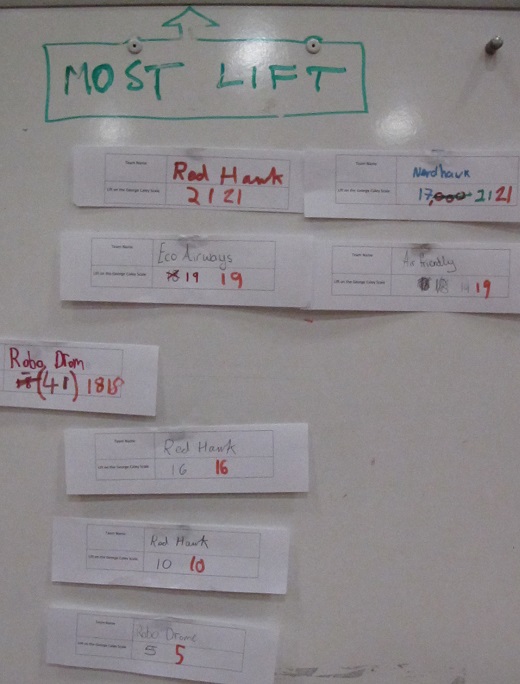 MOST LIFT
Team Name
Red Hawk
Lift on the George Caley Scale
21 21
Team Name
Nerdhawk
Lift on the George Caley Scale
17,000 21 21
Team Name
Eco Airways
Lift on the George Caley Scale
19 19
Team Name
Air friendly
Lift on the George Caley Scale
18 19 19
Robo, Drom
18 (41) 18 18
Team Name
Red Hawk
Lift on the George Caley Scale
16 16
Team Name
Red Hawk
Lift on the George Caley Scale
10 10
Team Name
Robo Drome
Lift on the George Caley Scale
5 5